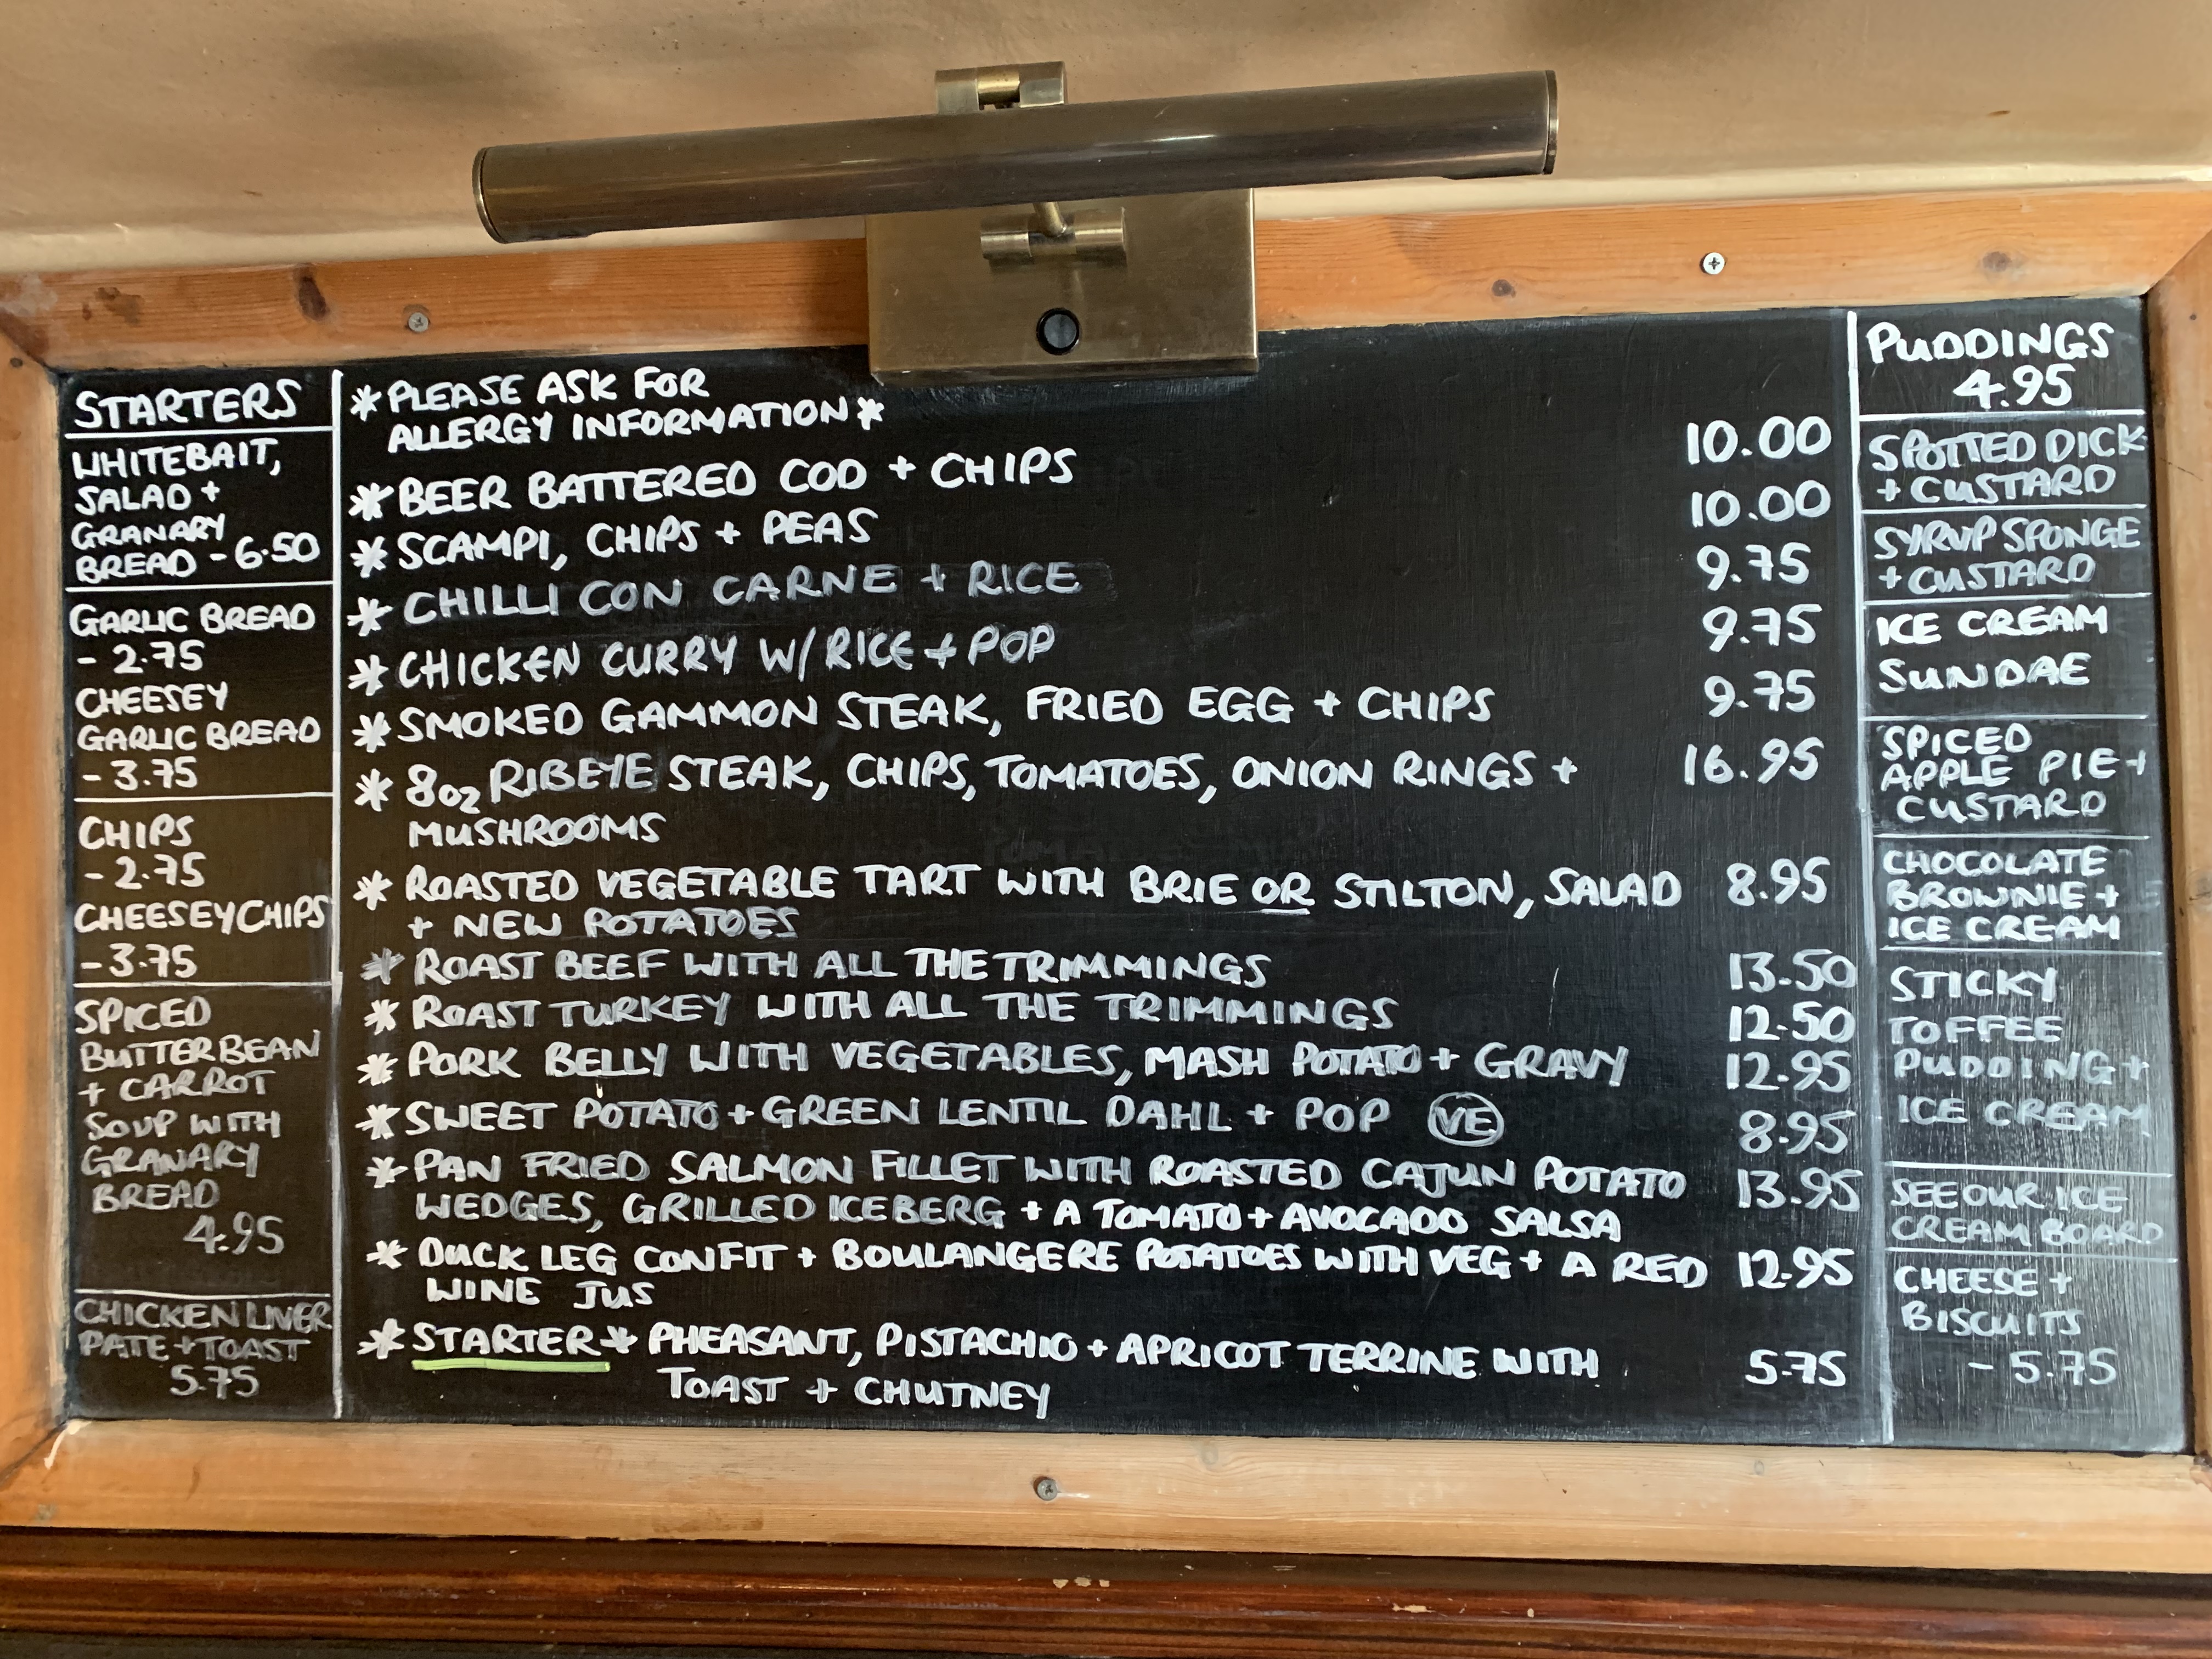 STARTERS
WHITEBAIT,
SALAD +
GRANARY
BREAD - 6.50
GARLIC BREAD
- 2.75
CHEESEY
GARLIC BREAD
- 3.75
CHIPS
- 2.75
CHEESEY CHIPS
- 3.75
SPICED
BUTTER BEAN
+ CARROT
SOUP WITH
GRANARY
BREAD
4.95
CHICKEN LIVER
PATE + TOAST
5.75
* PLEASE ASK FOR
ALLERGY INFORMATION *
* BEER BATTERED COD + CHIPS 10.00
* SCAMPI, CHIPS + PEAS 10.00
* CHILLI CON CARNE + RICE 9.75
* CHICKEN CURRY W/ RICE + POP 9.75
* SMOKED GAMMON STEAK, FRIED EGG + CHIPS 9.75
* 8oz RIBEYE STEAK, CHIPS, TOMATOES, ONION RINGS + 16.95
MUSHROOMS
* ROASTED VEGETABLE TART WITH BRIE OR STILTON, SALAD 8.95
+ NEW POTATOES
* ROAST BEEF WITH ALL THE TRIMMINGS 13.50
* ROAST TURKEY WITH ALL THE TRIMMINGS 12.50
* PORK BELLY WITH VEGETABLES, MASH POTATO + GRAVY 12.95
* SWEET POTATO + GREEN LENTIL DAHL + POP VE 8.95
* PAN FRIED SALMON FILLET WITH ROASTED CAJUN POTATO 13.95
WEDGES, GRILLED ICEBERG + A TOMATO + AVOCADO SALSA
* DUCK LEG CONFIT + BOULANGERE POTATOES WITH VEG + A RED 12.95
WINE JUS
* STARTER * PHEASANT, PISTACHIO + APRICOT TERRINE WITH 5.75
TOAST + CHUTNEY
PUDDINGS
4.95
SPOTTED DICK
+ CUSTARD
SYRUP SPONGE
+ CUSTARD
ICE CREAM
SUNDAE
SPICED
APPLE PIE +
CUSTARD
CHOCOLATE
BROWNIE +
ICE CREAM
STICKY
TOFFEE
PUDDING +
ICE CREAM
SEE OUR ICE
CREAM BOARD
CHEESE +
BISCUITS
- 5.75